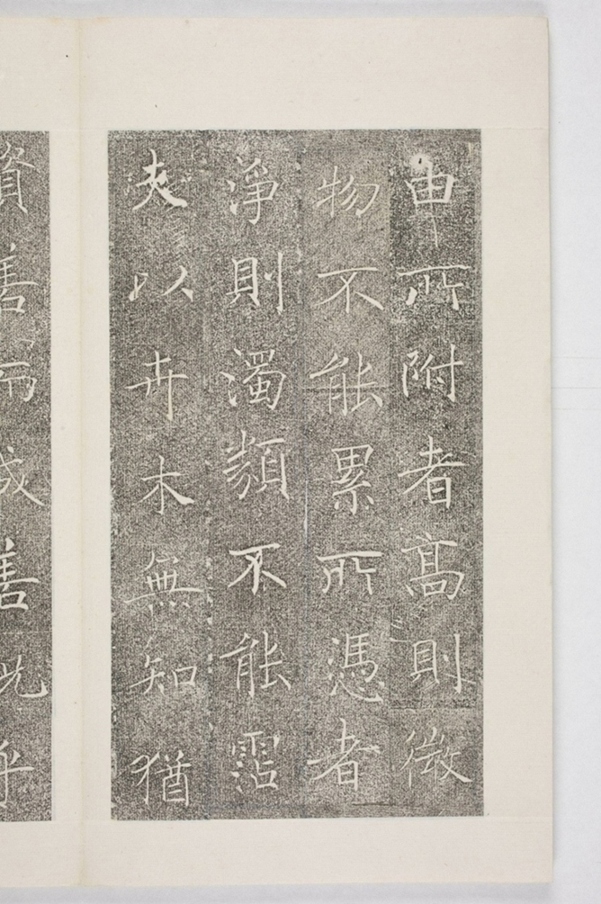 由所附者髙則微
物不能累所憑者
淨則濁類不能霑
夫以卉木無知猶
資善而成善況乎